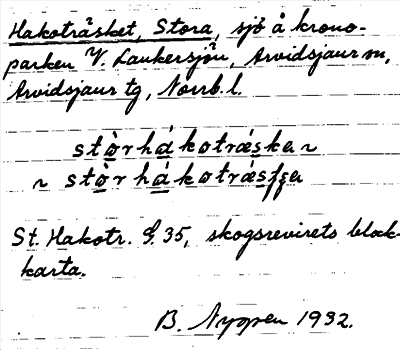 Hakoträsket, Stora, sjö å krono-
parken V. Laukersjön, Arvidsjaur sn,
Arvidsjaur tg, Norrb. l.
stòrhákotrǽska ~
~ stòrhákotrǽsʃa
St. Hakotr. G. 35, skogsrevirets block-
karta.
B. Nyppen 1932.